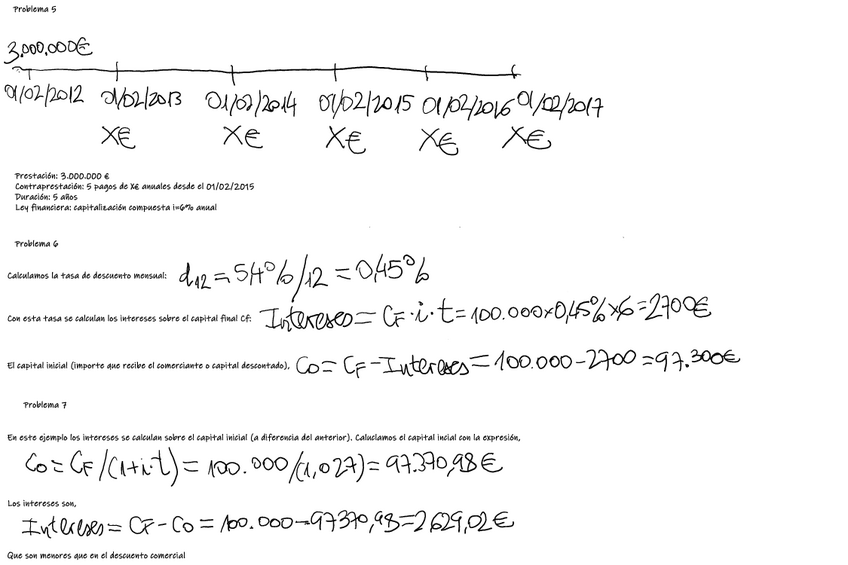 Problema 5
3.000.000€
01/02/2012 01/02/2013 01/02/2014 01/02/2015 01/02/2016 01/02/2017
X€ X€ X€ X€ X€
Prestación: 3.000.000 €
Contraprestación: 5 pagos de X€ anuales desde el 01/02/2015
Duración: 5 años
Ley financiera: capitalización compuesta i=6% anual
Problema 6
Calculamos la tasa de descuento mensual: d12 = 5,4%/12 = 0,45%
Con esta tasa se calculan los intereses sobre el capital final Cf: Intereses = CF·i·t = 100.000x0,45%x6 = 2700€
El capital inicial (importe que recibe el comerciante o capital descontado), Co = CF - Intereses = 100.000 - 2700 = 97.300€
Problema 7
En este ejemplo los intereses se calculan sobre el capital inicial (a diferencia del anterior). Caluclamos el capital incial con la expresión,
Co = CF/(1+i·t) = 100.000/(1,027) = 97.370,98€
Los intereses son,
Intereses = CF - Co = 100.000 - 97370,98 = 2629,02€
Que son menores que en el descuento comercial